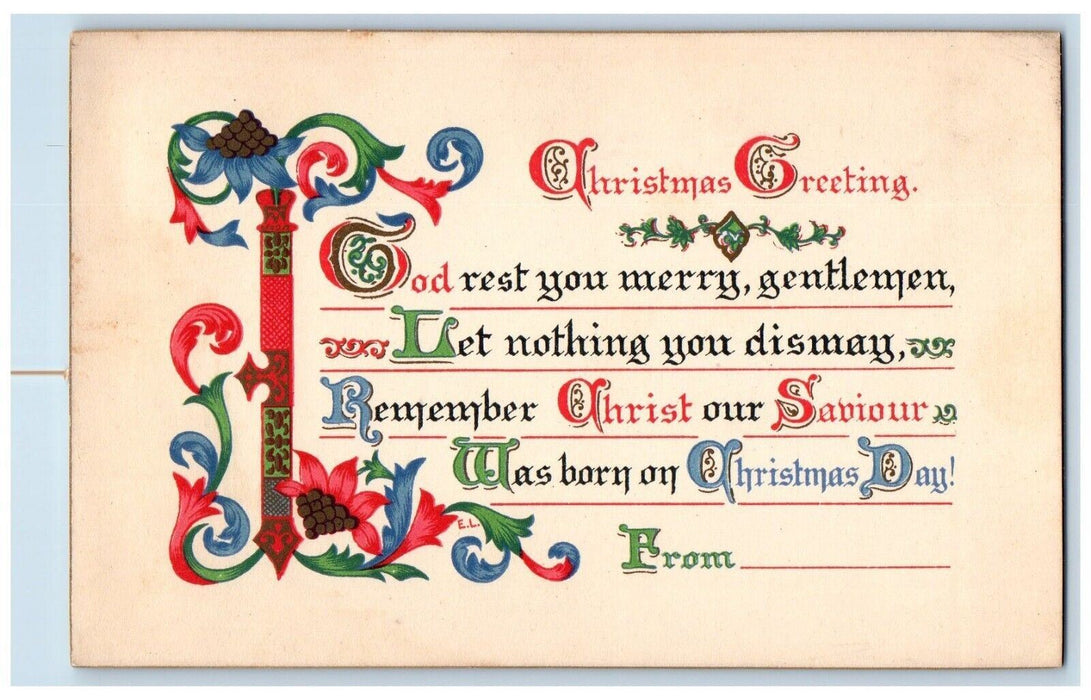 Christmas Greeting.
God rest you merry, gentlemen,
Let nothing you dismay,
Remember Christ our Saviour
Was born on Christmas Day!
E.L.
From